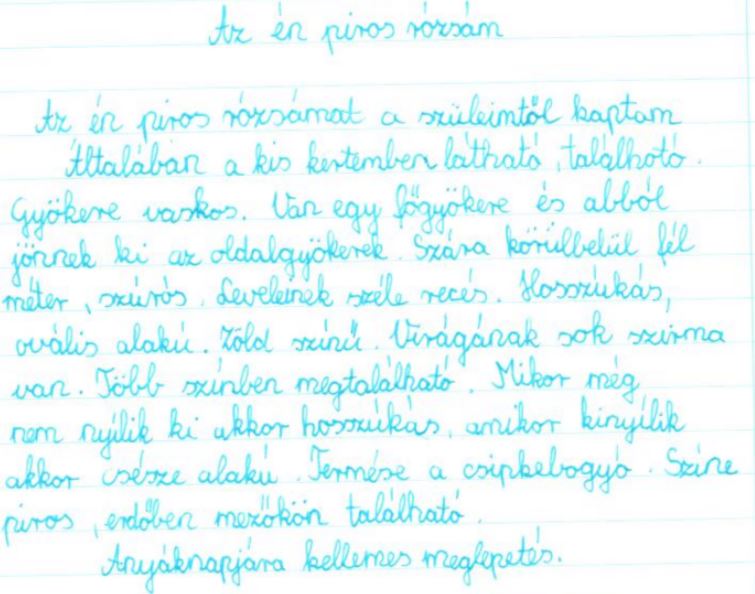 Az én piros rózsám
Az én piros rózsámat a szüleimtől kaptam
Általában a kis kertemben látható, található.
Gyökere vaskos. Van egy főgyökere és abból
jönnek ki az oldalgyökerek. Szára körülbelül fél
méter, szúrós. Leveleinek széle recés. Hosszúkás,
ovális alakú. Zöld színű. Virágának sok szirma
van. Több színben megtalálható. Mikor még
nem nyílik ki akkor hosszúkás, amikor kinyílik
akkor csésze alakú. Termése a csipkebogyó. Színe
piros, erdőben mezőkön található.
Anyáknapjára kellemes meglepetés.